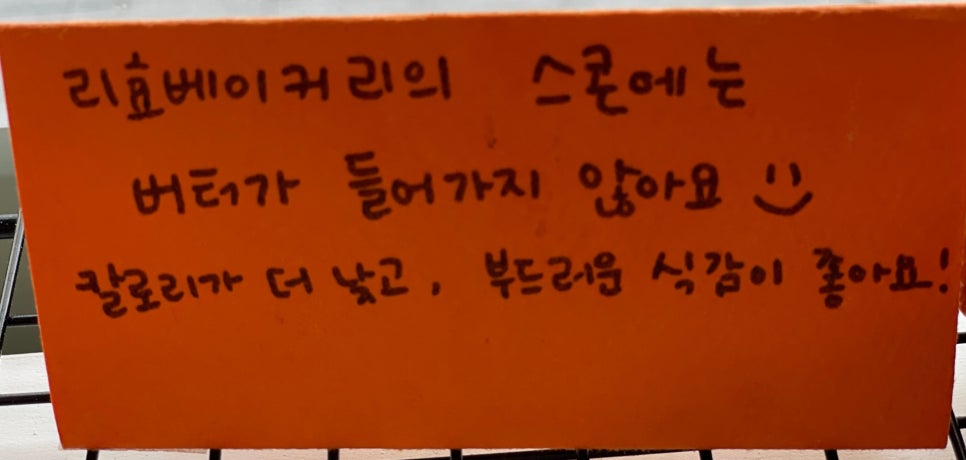 리효베이커리의 스콘에는
버터가 들어가지 않아요 :)
칼로리가 더 낮고, 부드러운 식감이 좋아요!